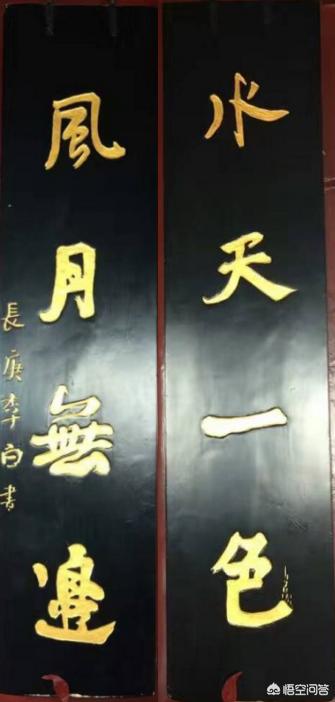 水天一色
風月無邊
長庚李白書
悟空问答